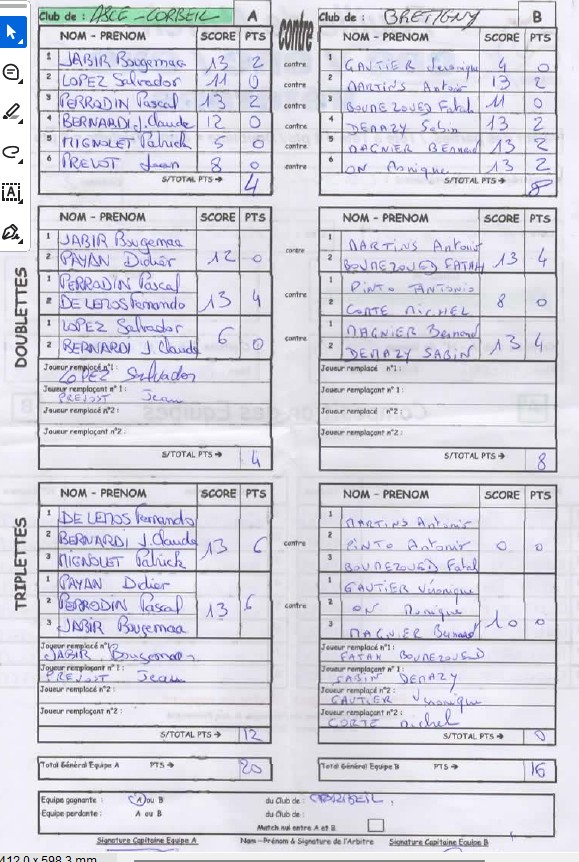 Club de : ASCE - CORBEIL A contre Club de : BRETIGNY B
NOM - PRENOM SCORE PTS NOM - PRENOM SCORE PTS
1 JABIR Bougemaa 13 2 contre 1 GAUTIER Veronique 4 0
2 LOPEZ Salvador 11 0 contre 2 MARTINS Antonio 13 2
3 PERRODIN Pascal 13 2 contre 3 BOUMEZOUED Fatah 11 0
4 BERNARDI J.Claude 12 0 contre 4 DEMAZY Sabin 13 2
5 MIGNOLET Patrick 5 0 contre 5 MAGNIER Bernard 13 2
6 PREVOT Jean 8 0 contre 6 ON Monique 13 2
S/TOTAL PTS → 4 S/TOTAL PTS → 8
DOUBLETTES
NOM - PRENOM SCORE PTS NOM - PRENOM SCORE PTS
1 JABIR Bougemaa 1 MARTINS Antonio
2 PAYAN Didier 12 0 contre 2 BOUMEZOUED FATAH 13 4
1 PERRODIN Pascal 1 PINTO ANTONIO
2 DE LEMOS Fernando 13 4 contre 2 CORTE MICHEL 8 0
1 LOPEZ Salvador 1 MAGNIER Bernard
2 BERNARDI J.Claude 6 0 contre 2 DEMAZY SABIN 13 4
Joueur remplacé n°1 : LOPEZ Salvador Joueur remplacé n°1 :
Joueur remplaçant n°1 : PREVOST Jean Joueur remplaçant n°1 :
Joueur remplacé n°2 : Joueur remplacé n°2 :
Joueur remplaçant n°2 : Joueur remplaçant n°2 :
S/TOTAL PTS → 4 S/TOTAL PTS → 8
TRIPLETTES
NOM - PRENOM SCORE PTS NOM - PRENOM SCORE PTS
1 DE LEMOS Fernando 1 MARTINS Antonio
2 BERNARDI J.Claude 13 6 contre 2 PINTO Antonio 0 0
3 MIGNOLET Patrick 3 BOUMEZOUED Fatah
1 PAYAN Didier 1 GAUTIER Véronique
2 PERRODIN Pascal 13 6 contre 2 ON Monique 10 0
3 JABIR Bougemaa 3 MAGNIER Bernard
Joueur remplacé n°1 : JABIR Bougemaa Joueur remplacé n°1 : FATAH BOUMEZOUED
Joueur remplaçant n°1 : PREVOST Jean Joueur remplaçant n°1 : SABIN DEMAZY
Joueur remplacé n°2 : Joueur remplacé n°2 : GAUTIER Véronique
Joueur remplaçant n°2 : Joueur remplaçant n°2 : CORTE Michel
S/TOTAL PTS → 12 S/TOTAL PTS → 0
Total Général Equipe A PTS → 20 Total Général Equipe B PTS → 16
Equipe gagnante : A ou B du Club de : CORBEIL
Equipe perdante : A ou B du Club de :
Match nul entre A et B
Signature Capitaine Equipe A Nom - Prénom & Signature de l'Arbitre Signature Capitaine Equipe B
412,0 x 598,3 mm